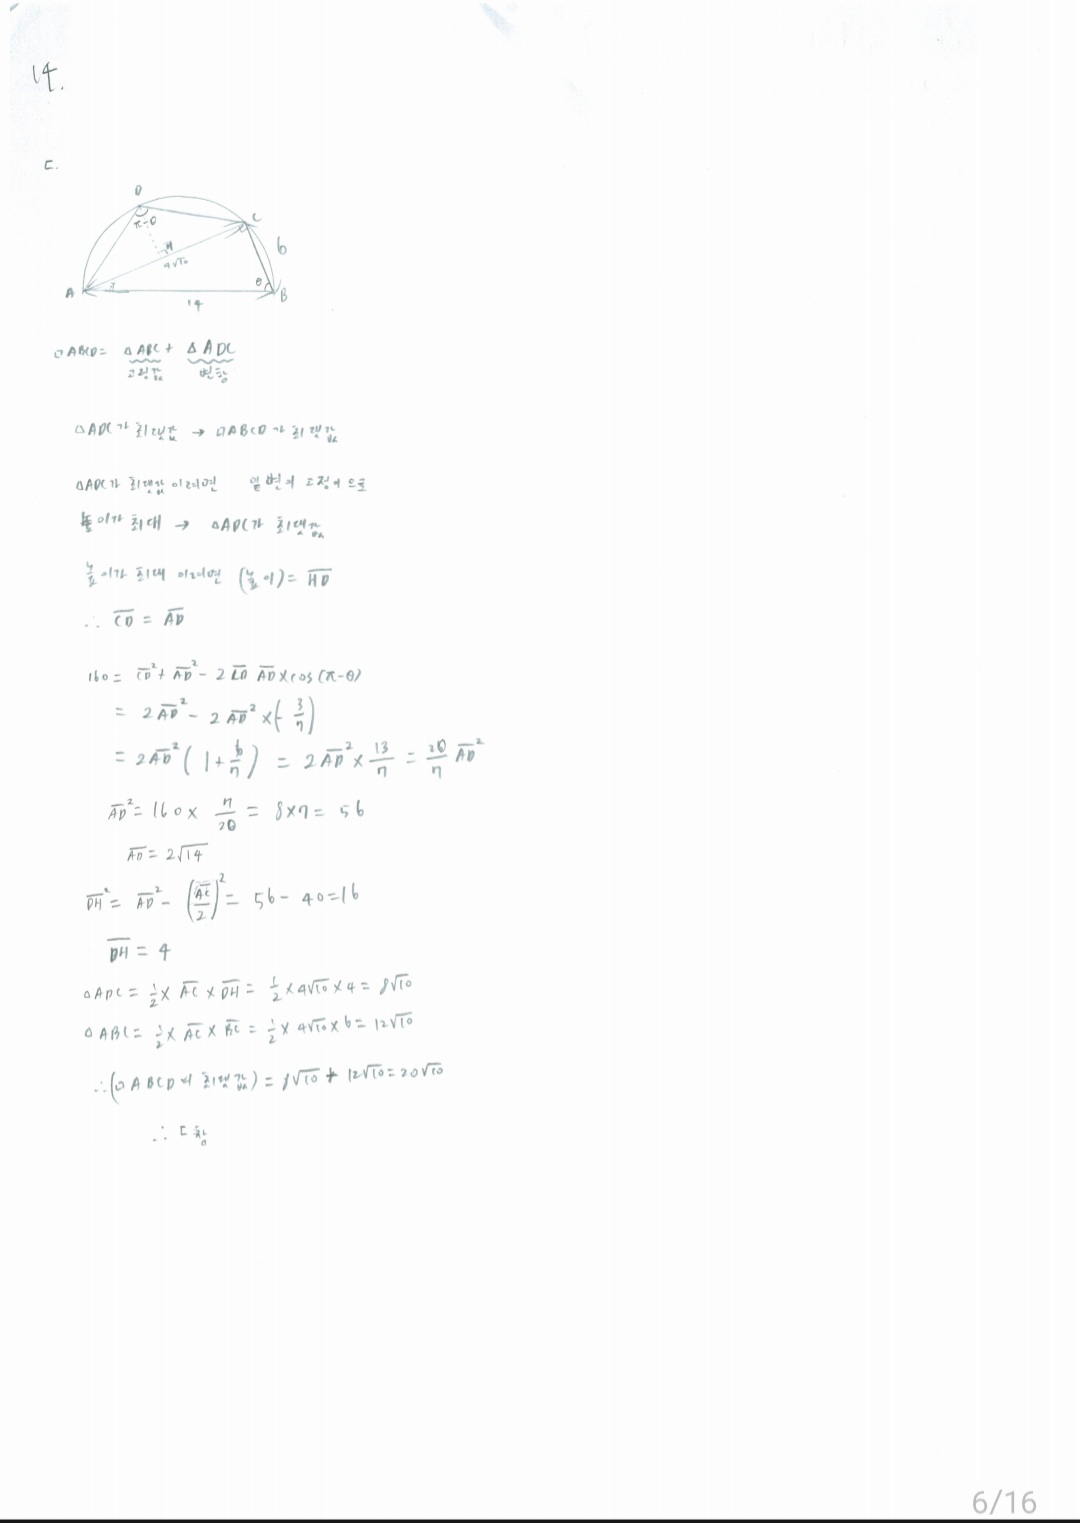 14.
ㄷ.
D
π-θ
C
H
6
4√10
A
x
θ
B
14
□ABCD = △ABC + △ADC
고정값 변함
△ADC가 최댓값 → □ABCD가 최댓값
△ADC가 최댓값 이려면 밑변이 고정이므로
높이가 최대 → △ADC가 최댓값
높이가 최대 이려면 (높이) = H̅D̅
∴ C̅D̅ = A̅D̅
160 = C̅D̅² + A̅D̅² - 2 C̅D̅ A̅D̅ × cos(π-θ)
= 2A̅D̅² - 2A̅D̅² × (-3/7)
= 2A̅D̅² (1 + 6/7) = 2A̅D̅² × 13/7 = 20/7 A̅D̅²
A̅D̅² = 160 × 7/20 = 8×7 = 56
A̅D̅ = 2√14
D̅H̅² = A̅D̅² - (A̅C̅/2)² = 56 - 40 = 16
D̅H̅ = 4
△ADC = 1/2 × A̅C̅ × D̅H̅ = 1/2 × 4√10 × 4 = 8√10
△ABC = 1/2 × A̅C̅ × B̅C̅ = 1/2 × 4√10 × 6 = 12√10
∴ (□ABCD의 최댓값) = 8√10 + 12√10 = 20√10
∴ ㄷ 참
6/16